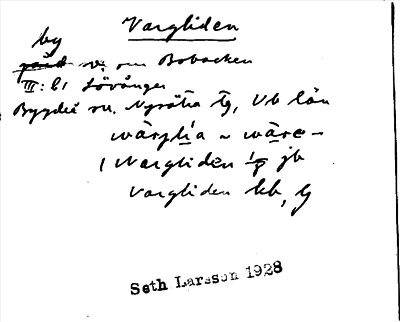 Vargliden
by
gård v. om Bobacken
III: b1 Lövånger
Bygdeå sn. Nysätra tg, Vb län
wàrglí̱a ~ wàre-
Vargliden 1/8 jb
Vargliden kb, tg
Seth Larsson 1928